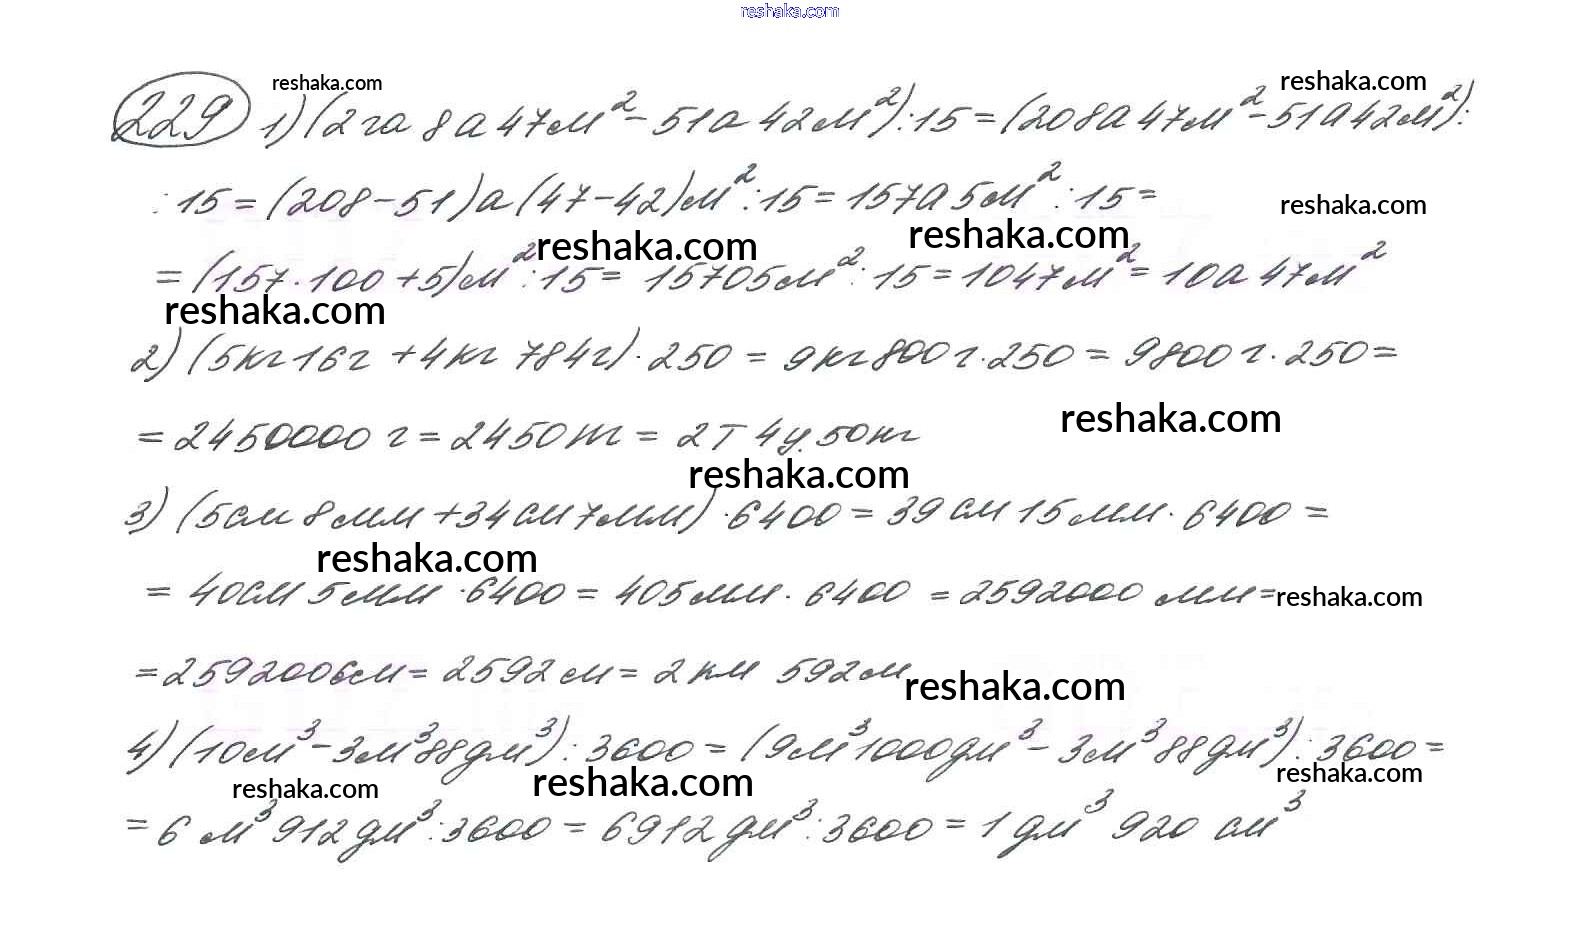 reshaka.com
reshaka.com reshaka.com
229 1) (2га 8а 47м² - 51а 42м²) : 15 = (208а 47м² - 51а 42м²) :
: 15 = (208 - 51)а (47 - 42)м² : 15 = 157а 5м² : 15 =
reshaka.com
reshaka.com reshaka.com
= (157 · 100 + 5)м² : 15 = 15705м² : 15 = 1047м² = 10а 47м²
reshaka.com
2) (5кг 16г + 4кг 784г) · 250 = 9кг 800г · 250 = 9800г · 250 =
reshaka.com
= 2450000 г = 2450кг = 2т 4ц 50кг
reshaka.com
3) (5см 8мм + 34см 7мм) · 6400 = 39см 15мм · 6400 =
reshaka.com
= 40см 5мм · 6400 = 405мм · 6400 = 2592000 мм =
reshaka.com
= 259200см = 2592м = 2км 592м
reshaka.com
4) (10м³ - 3м³ 88дм³) : 3600 = (9м³ 1000дм³ - 3м³ 88дм³) : 3600 =
reshaka.com reshaka.com reshaka.com
= 6 м³ 912дм³ : 3600 = 6912дм³ : 3600 = 1дм³ 920 см³